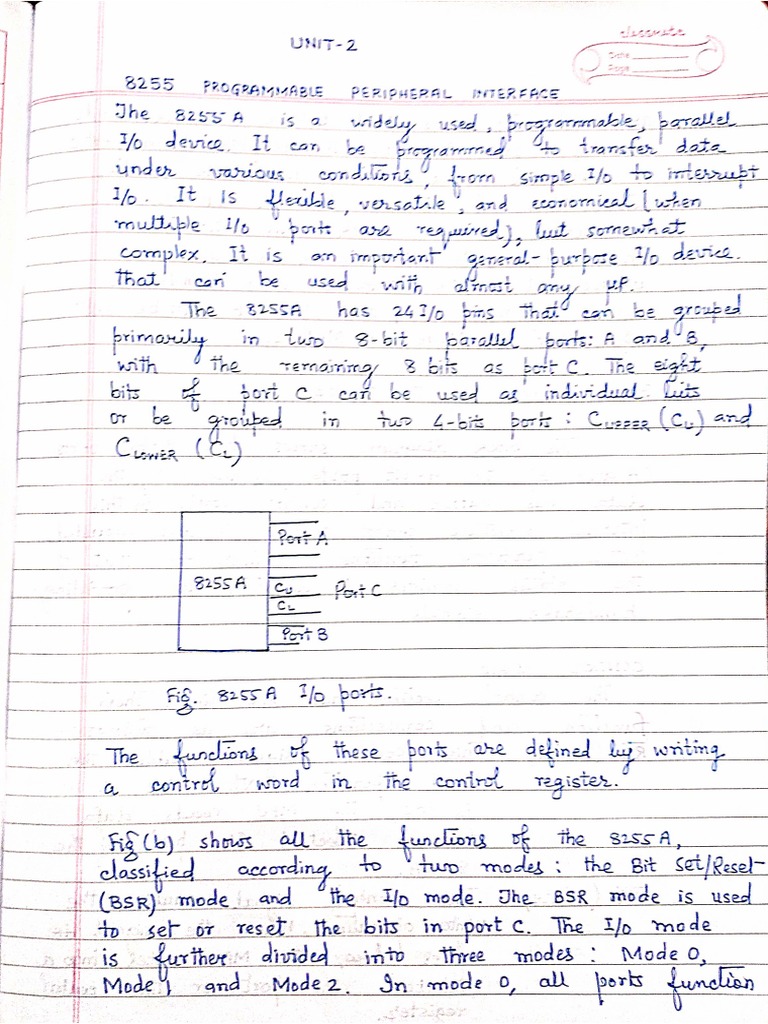 UNIT-2
classmate
Date
Page
8255 PROGRAMMABLE PERIPHERAL INTERFACE
The 8255A is a widely used, programmable, parallel
I/O device. It can be programmed to transfer data
under various conditions, from simple I/O to interrupt
I/O. It is flexible, versatile, and economical (when
multiple I/O ports are required), but somewhat
complex. It is an important general-purpose I/O device.
that can be used with almost any μP.
The 8255A has 24 I/O pins that can be grouped
primarily in two 8-bit parallel ports: A and B,
with the remaining 8 bits as port C. The eight
bits of port C can be used as individual bits
or be grouped in two 4-bits ports : CUPPER (CU) and
CLOWER (CL)
Port A
8255A
CU Port C
CL
Port B
Fig. 8255A I/O ports.
The functions of these ports are defined by writing
a control word in the control register.
Fig (b) shows all the functions of the 8255A,
classified according to two modes : the Bit Set/Reset
(BSR) mode and the I/O mode. The BSR mode is used
to set or reset the bits in port C. The I/O mode
is further divided into three modes : Mode 0,
Mode 1 and Mode 2. In mode 0, all ports function